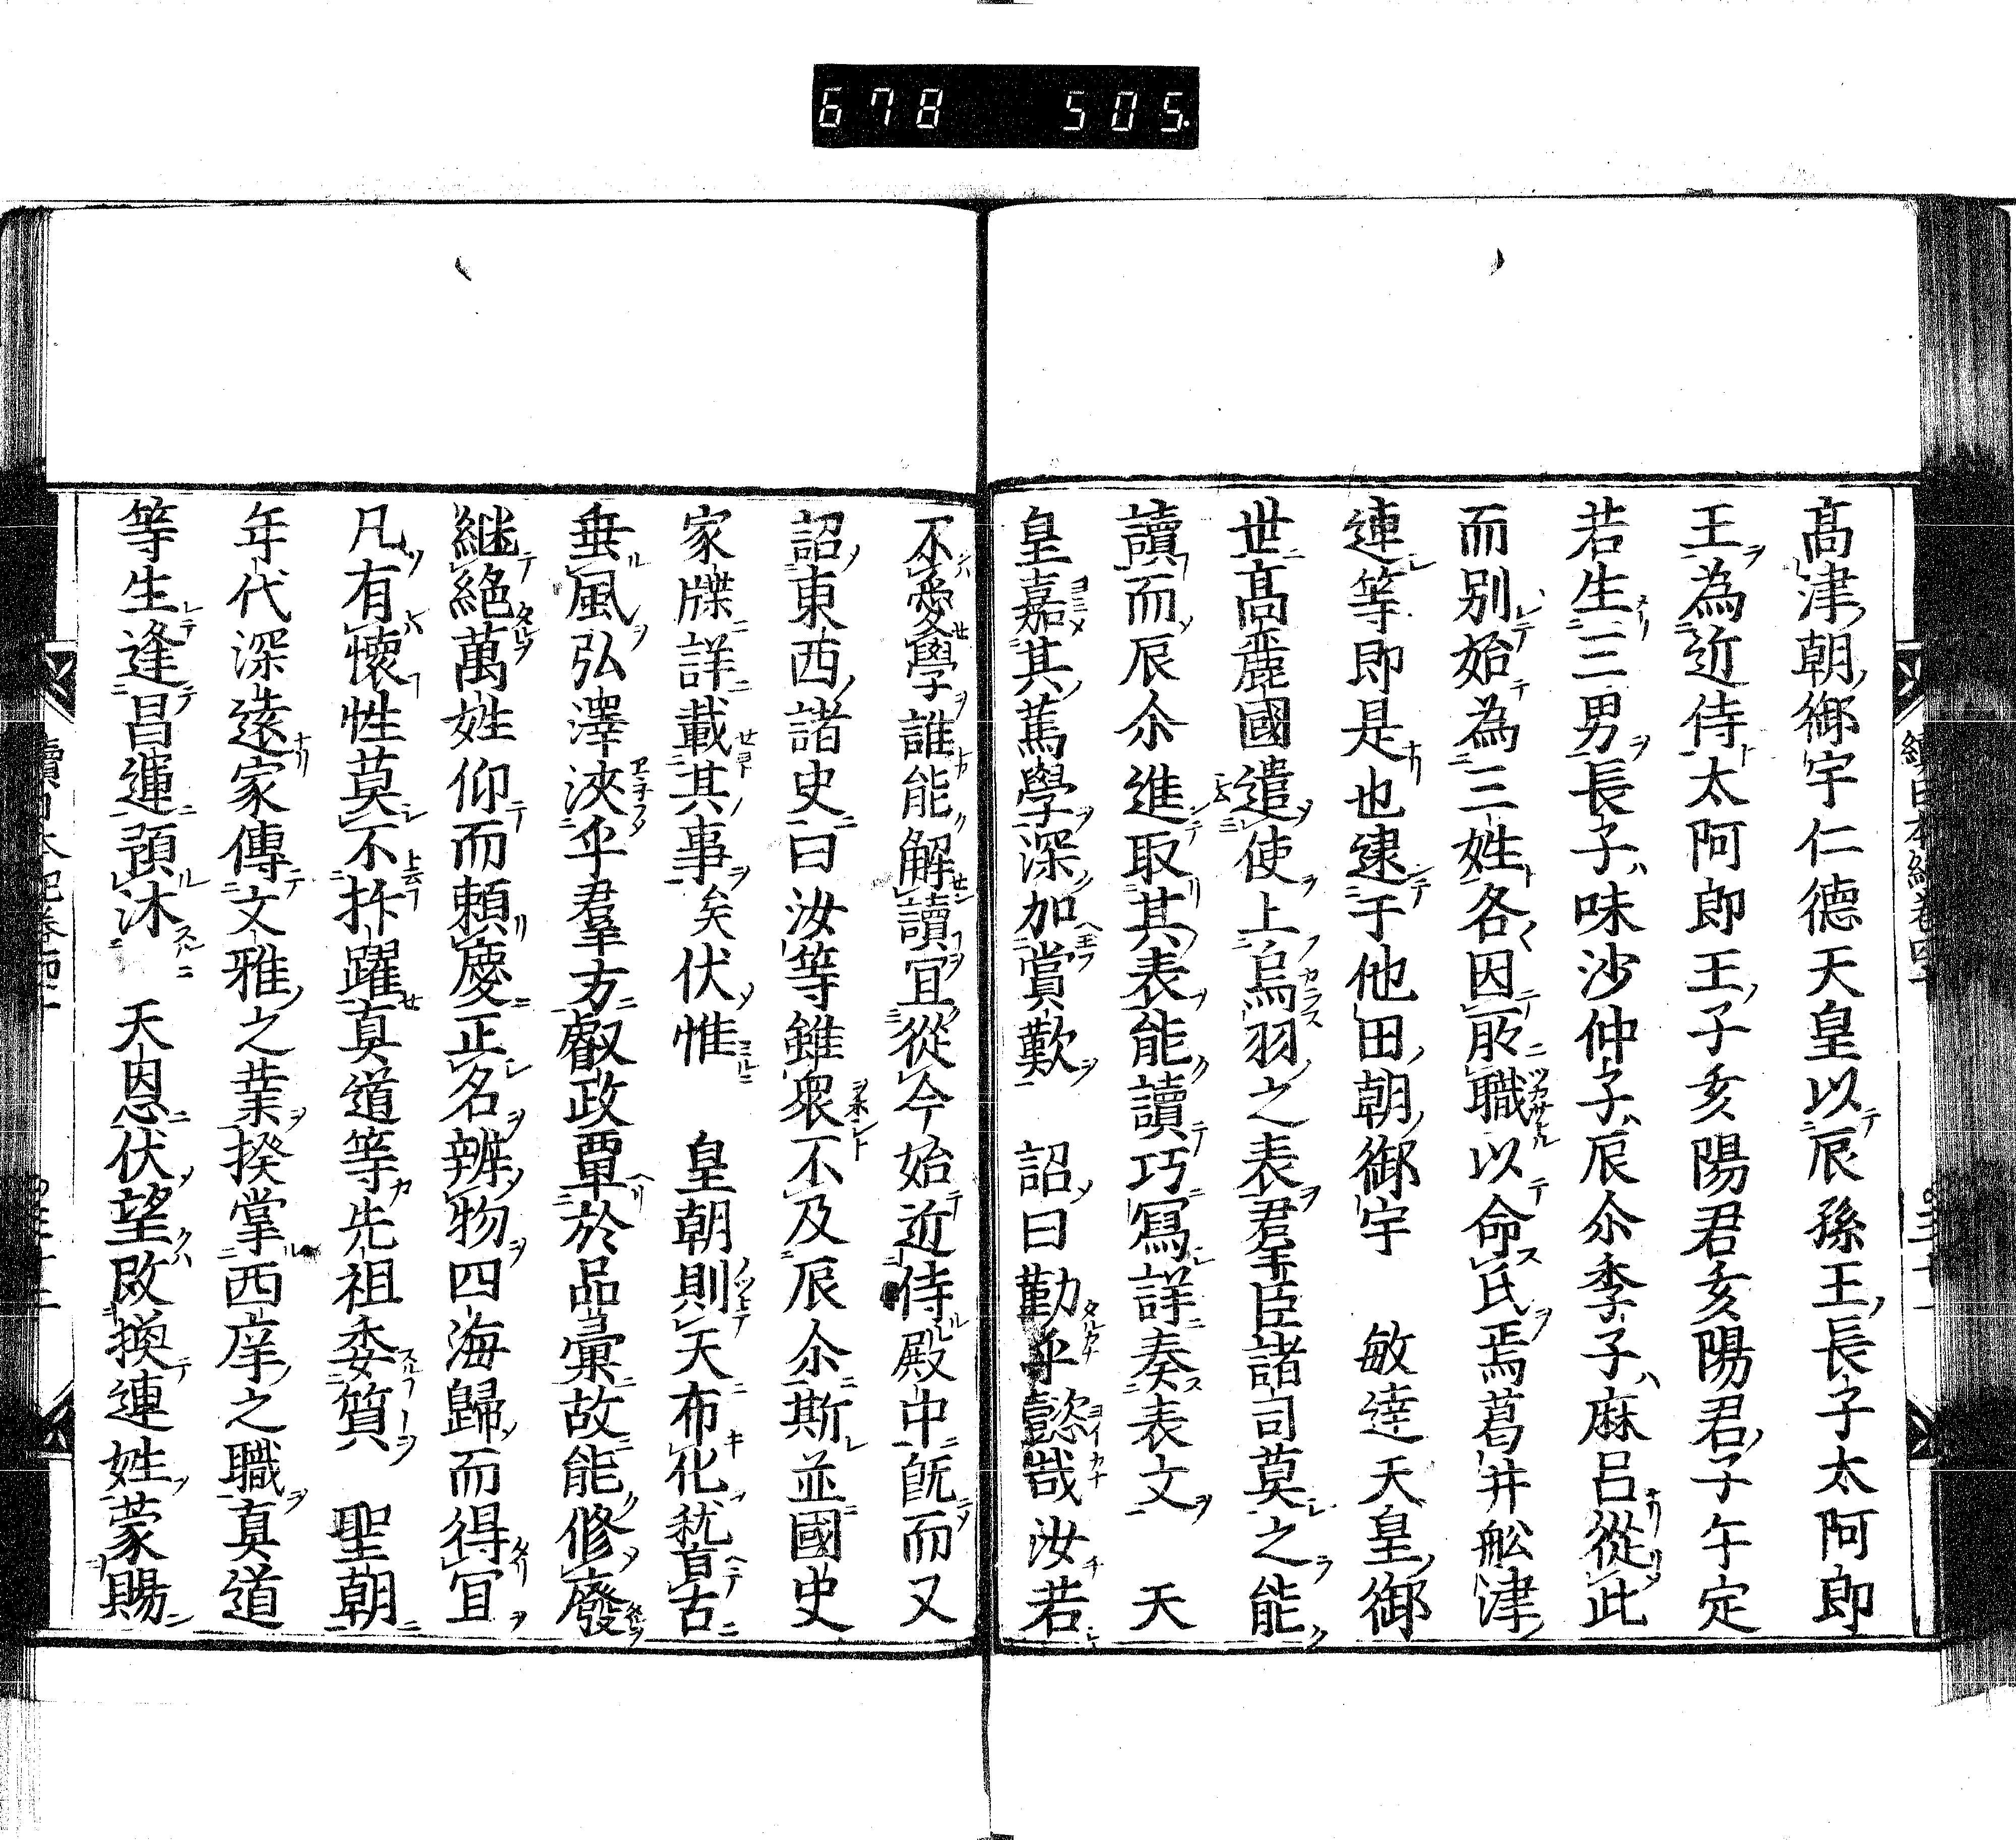 678 505.
高津朝御宇仁德天皇以辰孫王長子太阿郎
王為近侍太阿郎王子亥陽君亥陽君子午定
若生三男長子味沙仲子辰尒季子麻呂從此
而別始為三姓各因所職以命氏焉葛井舩津
連等即是也逮于他田朝御宇　敏達天皇御
世高麗國遣使上烏羽之表群臣諸司莫之能
讀而辰尒進取其表能讀巧寫詳奏表文　天
皇嘉其篤學深加賞歎　詔曰勤乎懿哉汝若
不愛學誰能解讀宜從今始近侍殿中既而又
詔東西諸史曰汝等雖衆不及辰尒斯並國史
家牒詳載其事矣伏惟　皇朝則天布化稽古
垂風弘澤浹乎羣方叡政覃於品彙故能修廢
継絶萬姓仰而頼慶正名辨物四海歸而得宜
凡有懷性莫不抃躍真道等先祖委質　聖朝
年代深遠家傳文雅之業族掌西庠之職真道
等生逢昌運預沐　天恩伏望改換連姓蒙賜